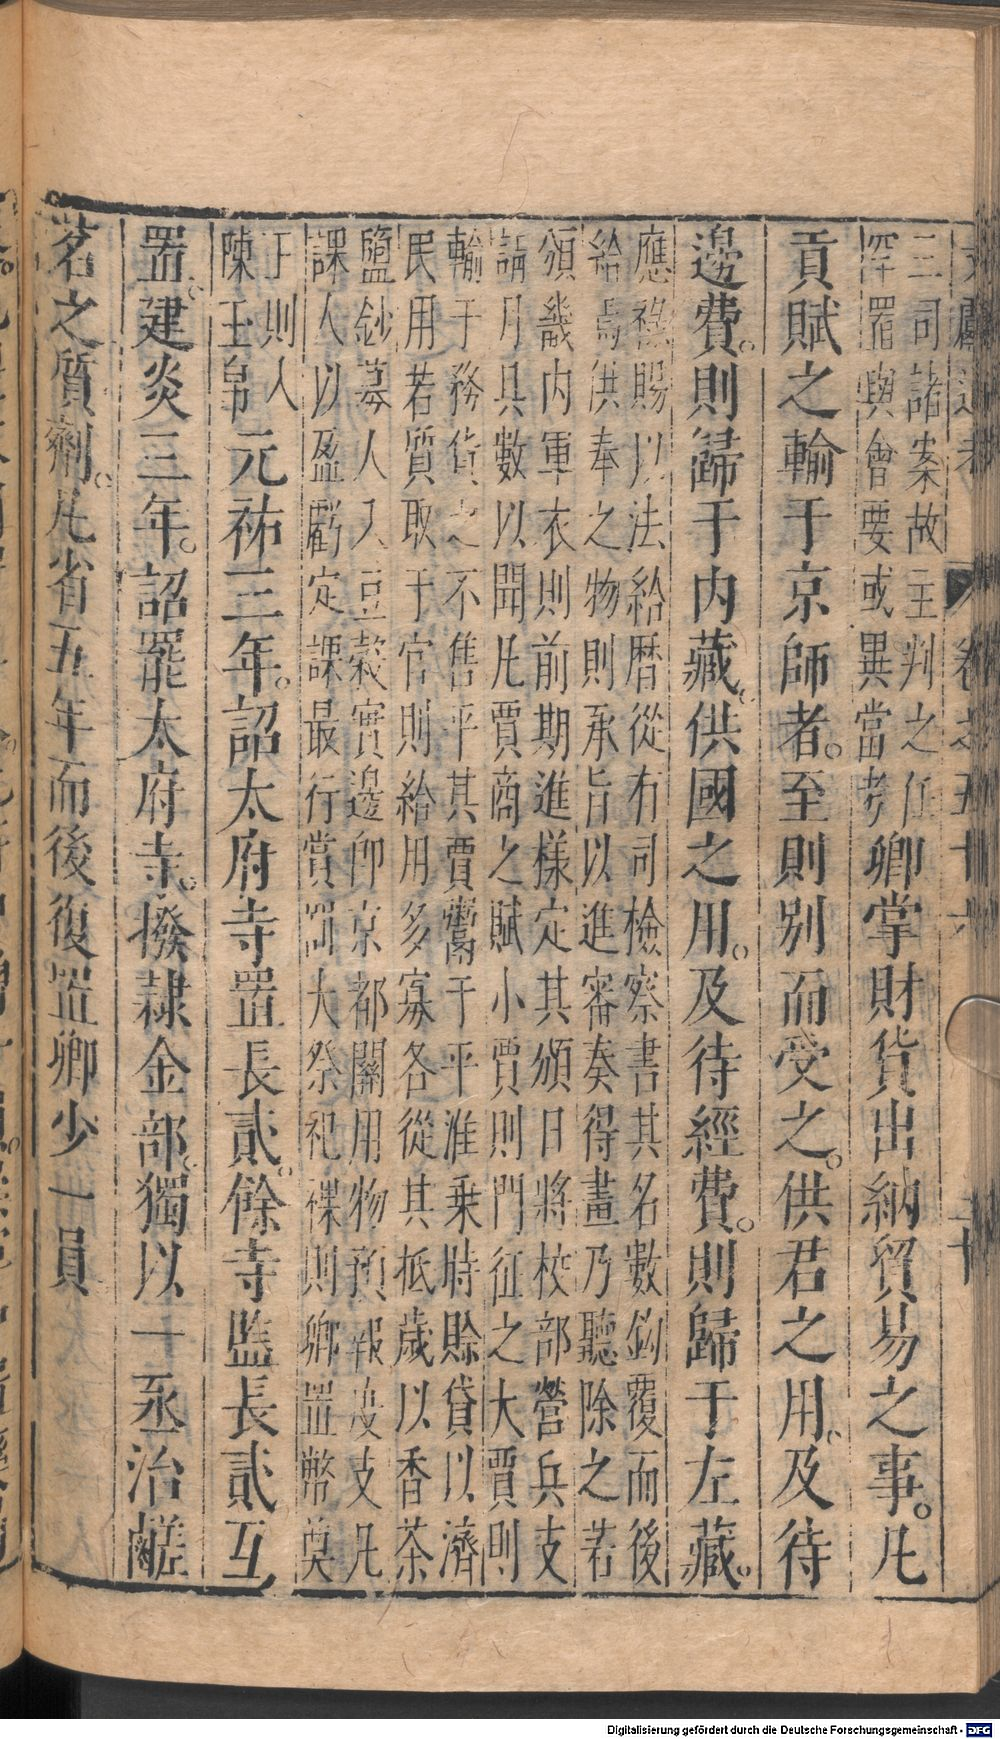 文獻通考　卷之五十六　二十
三司諸案故主判之任
罕罷與會要或異當考卿掌財貨出納貿易之事。凡
貢賦之輸于京師者。至則別而受之。供君之用。及待
邊費。則歸于內藏。供國之用。及待經費。則歸于左藏。
應祿賜以法給曆從有司檢察書其名數鈎覆而後
給焉供奉之物則承旨以進審奏得畫乃聽除之若
頒畿內軍衣則前期進樣定其頒日將校部營兵支
請月具數以聞凡賈商之賦小賈則門征之大賈則
輸于務貨之不售平其賈鬻于平準乗時賒貸以濟
民用若質取于官則給用多寡各從其抵歲以香茶
鹽鈔募人入豆穀實邊卽京都闕用物預報度支凡
課人以盈虧定課最行賞罰大祭祀祼則卿置幣奠
玉則人
陳玉帛元祐三年。詔太府寺置長貳。餘寺監長貳互
置。建炎三年。詔罷太府寺。撥隸金部。獨以一丞治鹺
茗之質劑。凡省五年而後復置卿少一員
Digitalisierung gefördert durch die Deutsche Forschungsgemeinschaft - DFG